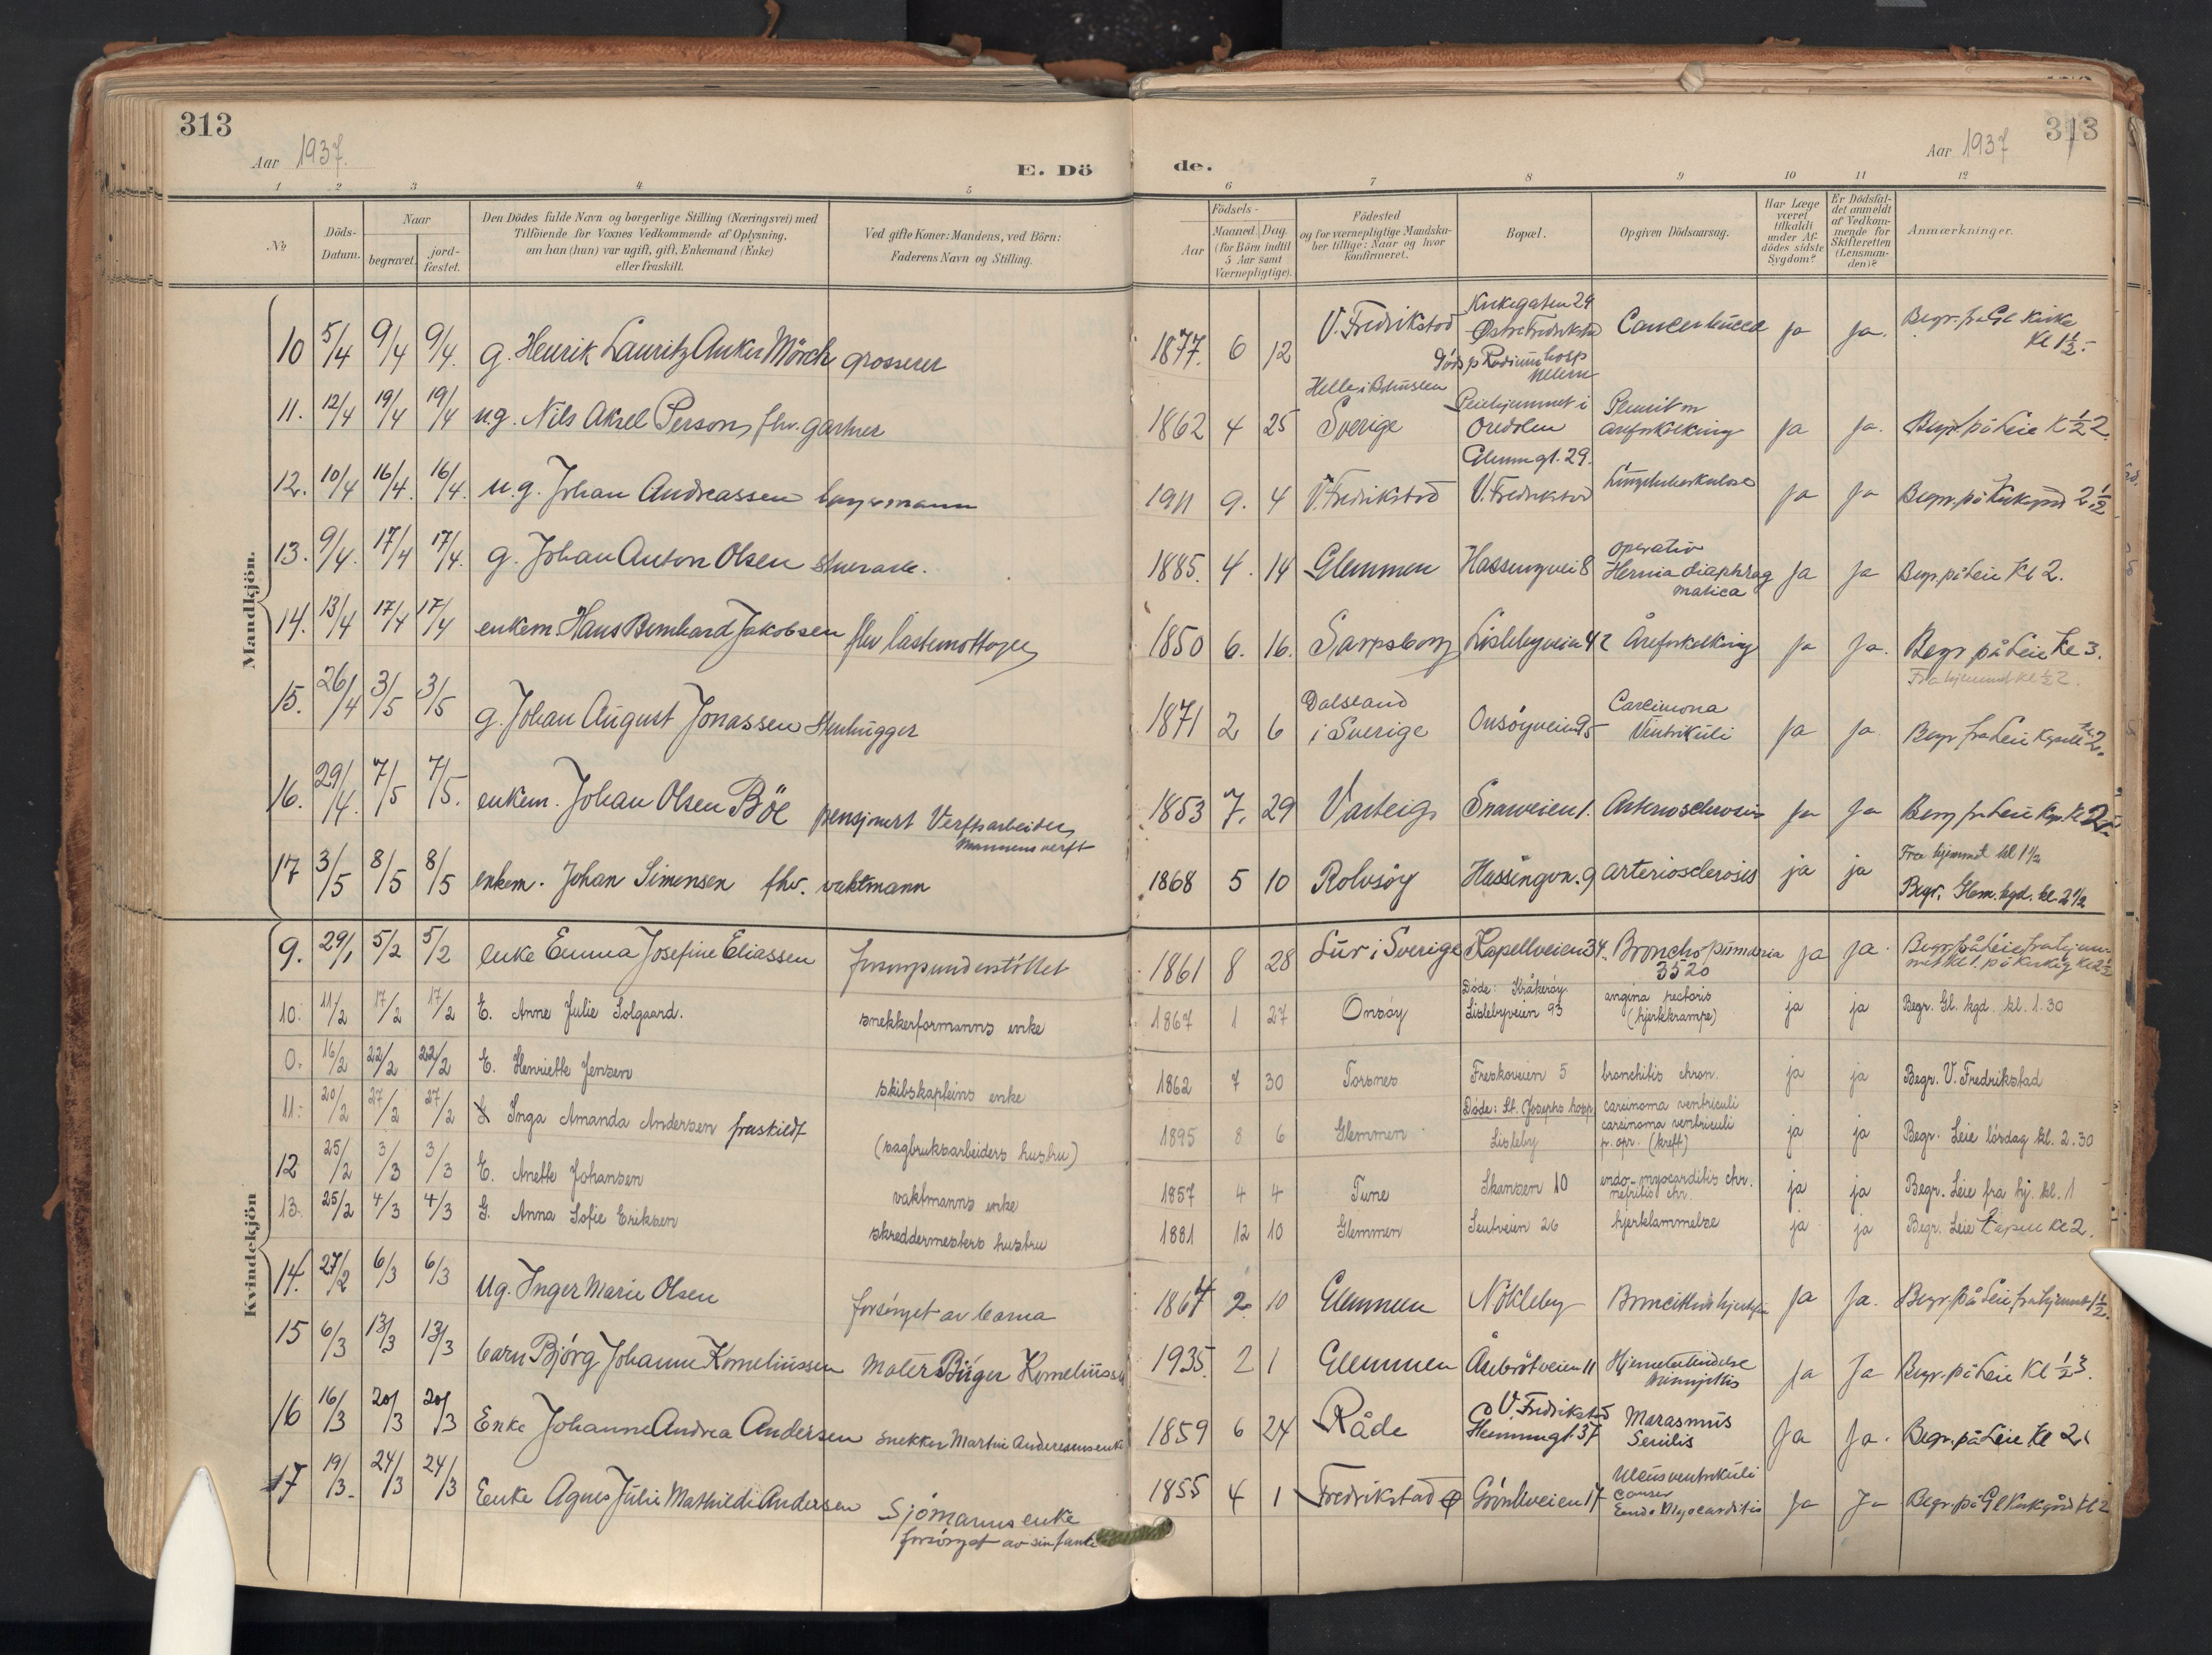 313
Aar 1937.
E. Dö
de.
Aar 1937
313
1 2 3 4 5 6 7 8 9 10 11 12
No
Döds-Datum.
Naar
begravet.
jord-fæstet.
Den Dödes fulde Navn og borgerlige Stilling (Næringsvei) med
Tilföiende for Voxnes Vedkommende af Oplysning,
om han (hun) var ugift, gift, Enkemand (Enke)
eller fraskilt.
Ved gifte Koner: Mandens, ved Börn:
Faderens Navn og Stilling.
Födsels-
Aar
Maaned. Dag.
(for Börn indtil
5 Aar samt
Værnepligtige).
Födested
og for værnepligtige Mandska-
ber tillige: Naar og hvor
konfirmeret.
Bopæl.
Opgiven Dödsaarsag.
Har Læge
været
tilkaldt
under Af-
dödes sidste
Sygdom?
Er Dödsfal-
det anmeldt
af Vedkom-
mende for
Skifteretten
(Lensman-
den)?
Anmærkninger.
Mandkjön.
10 5/4 9/4 9/4. g. Henrik Lauritz Anker Mörch grosserer 1877. 6 12 V. Fredrikstad Kirkegaten 24 Østre Fredrikstad Död p Radiumhosp Cancer buccea ja ja. Begr. fra Gl Kirke Kl 1½.
11. 12/4 19/4 19/4 ug. Nils Aksel Person, fhv. gartner 1862 4 25 Helle i Bohuslen Sverige Pleiehjemmet i Oredalen Pleurit m åreforkalkning ja ja. Begr. på Leie K ½2.
12. 10/4 16/4. 16/4. u.g. Johan Andreassen 1911 9. 4 V. Fredrikstad Glemmgt. 29. V. Fredrikstad Lungetuberkulose ja ja Begr. på Kirkegård 2½
13. 9/4. 17/4 17/4. g. Johan Anton Olsen stuerarb. 1885. 4. 14 Glemmen Hassingvei 8 operativ Hernia diaphrag matica ja ja Begr. på Leie Kl 2.
14. 13/4 17/4 17/4 enkem. Hans Bernhard Jakobsen fhv lastemottager 1850 6. 16. Sarpsborg Lislebyveien 42 Åreforkalkning ja ja. Begr på Leie Kl 3.
15. 26/4 3/5 3/5 g. Johan August Jonassen Stenhugger 1871 2 6 Dalsland i Sverige Onsöyveien 95 Carcinoma Ventrikuli ja ja Fra hjemmet kl ½2. Begr fra Leie Kapell
16. 29/4. 7/5 7/5. enkem. Johan Olsen Böe pensjonert Verftsarbeider 1853 7. 29 Varteig Snarveien 1. Arteriosclerosis ja ja Begr fra Leie Kap. Kl 2
17 3/5 8/5 8/5 enkem. Johan Simensen fhv. vaktmann 1868 5 10 Rolvsöy Hassingvn. 9 arteriosclerosis ja ja Fra hjemmet kl 1½ Begr. Glem. kgd. kl. 2½
Kvindekjön
9. 29/1 5/2 5/2 enke Emma Josefine Eliassen forsorgsunderstöttet 1861 8 28 Lur i Sverige Kapellveien 34. Broncho pnmonia 3520 ja ja. Begr. på Leie fra hjem-met Kl 1. på Kirkeg Kl 2½
10. 11/2 17/2 17/2 E. Anne Julie Solgaard. snekkerformanns enke 1867 1 27 Onsöy Döde: Kråkeröy. Lislebyveien 93 angina pectoris (hjertekrampe) ja ja Begr. Gl. kgd. kl. 1.30
0. 16/2 22/2 22/2 E. Henriette Jensen skibskapteins enke 1862 7 30 Torsnes Freskoveien 5 bronchitis chron. ja ja Begr. V. Fredrikstad
11. 20/2 27/2 27/2 Inga Amanda Andersen fraskildt (sagbruksarbeiders hustru) 1895 8 6 Glemmen Döde: St. Josephs hosp. Lisleby carcinoma ventriculi carcinoma ventriculi p. opr. (kreft) ja ja Begr. Leie lördag kl. 2.30
12 25/2 3/3 3/3 E. Anette Johansen vaktmanns enke 1857 4 4 Tune Skansen 10 endo-myocarditis chr. nefritis chr. ja ja Begr. Leie fra hj. kl. 1
13. 25/2 4/3 4/3 G. Anna Sofie Eriksen skreddermesters hustru 1881 12 10 Glemmen Seutveien 26 hjertelammelse ja ja Begr. Leie Kapell Kl 2.
14. 27/2 6/3 6/3 ug. Inger Marie Olsen forsörget av barna 1867 2. 10 Glemmen Nökleby ja ja. Begr. på Leie, fra hjemmet 1½.
15 6/3 13/3 13/3 barn Björg Johanne Korneliussen Maler Birger Korneliussen 1935. 2 1 Glemmen Årebrötveien 11 Hjernebetendelse ja Ja Begr. på Leie Kl ½3.
16 16/3 20/3 20/3 Enke Johanne Andrea Andersen snekker Martin Andersens enke 1859 6 24 Råde V. Fredrikstad Glemmengt. 37 Marasmus Senilis Ja Ja. Begr. på Leie Kl 2.
17 19/3. 24/3 24/3 Enke Agnes Julie Mathilde Andersen Sjömanns enke forsörget av sin tante 1855 4 1 Fredrikstad Ø Grönliveien 17 Ulcus ventrikuli cancer Endo Myocarditis Ja Ja Begr. på Gl Kirkegård Kl 2